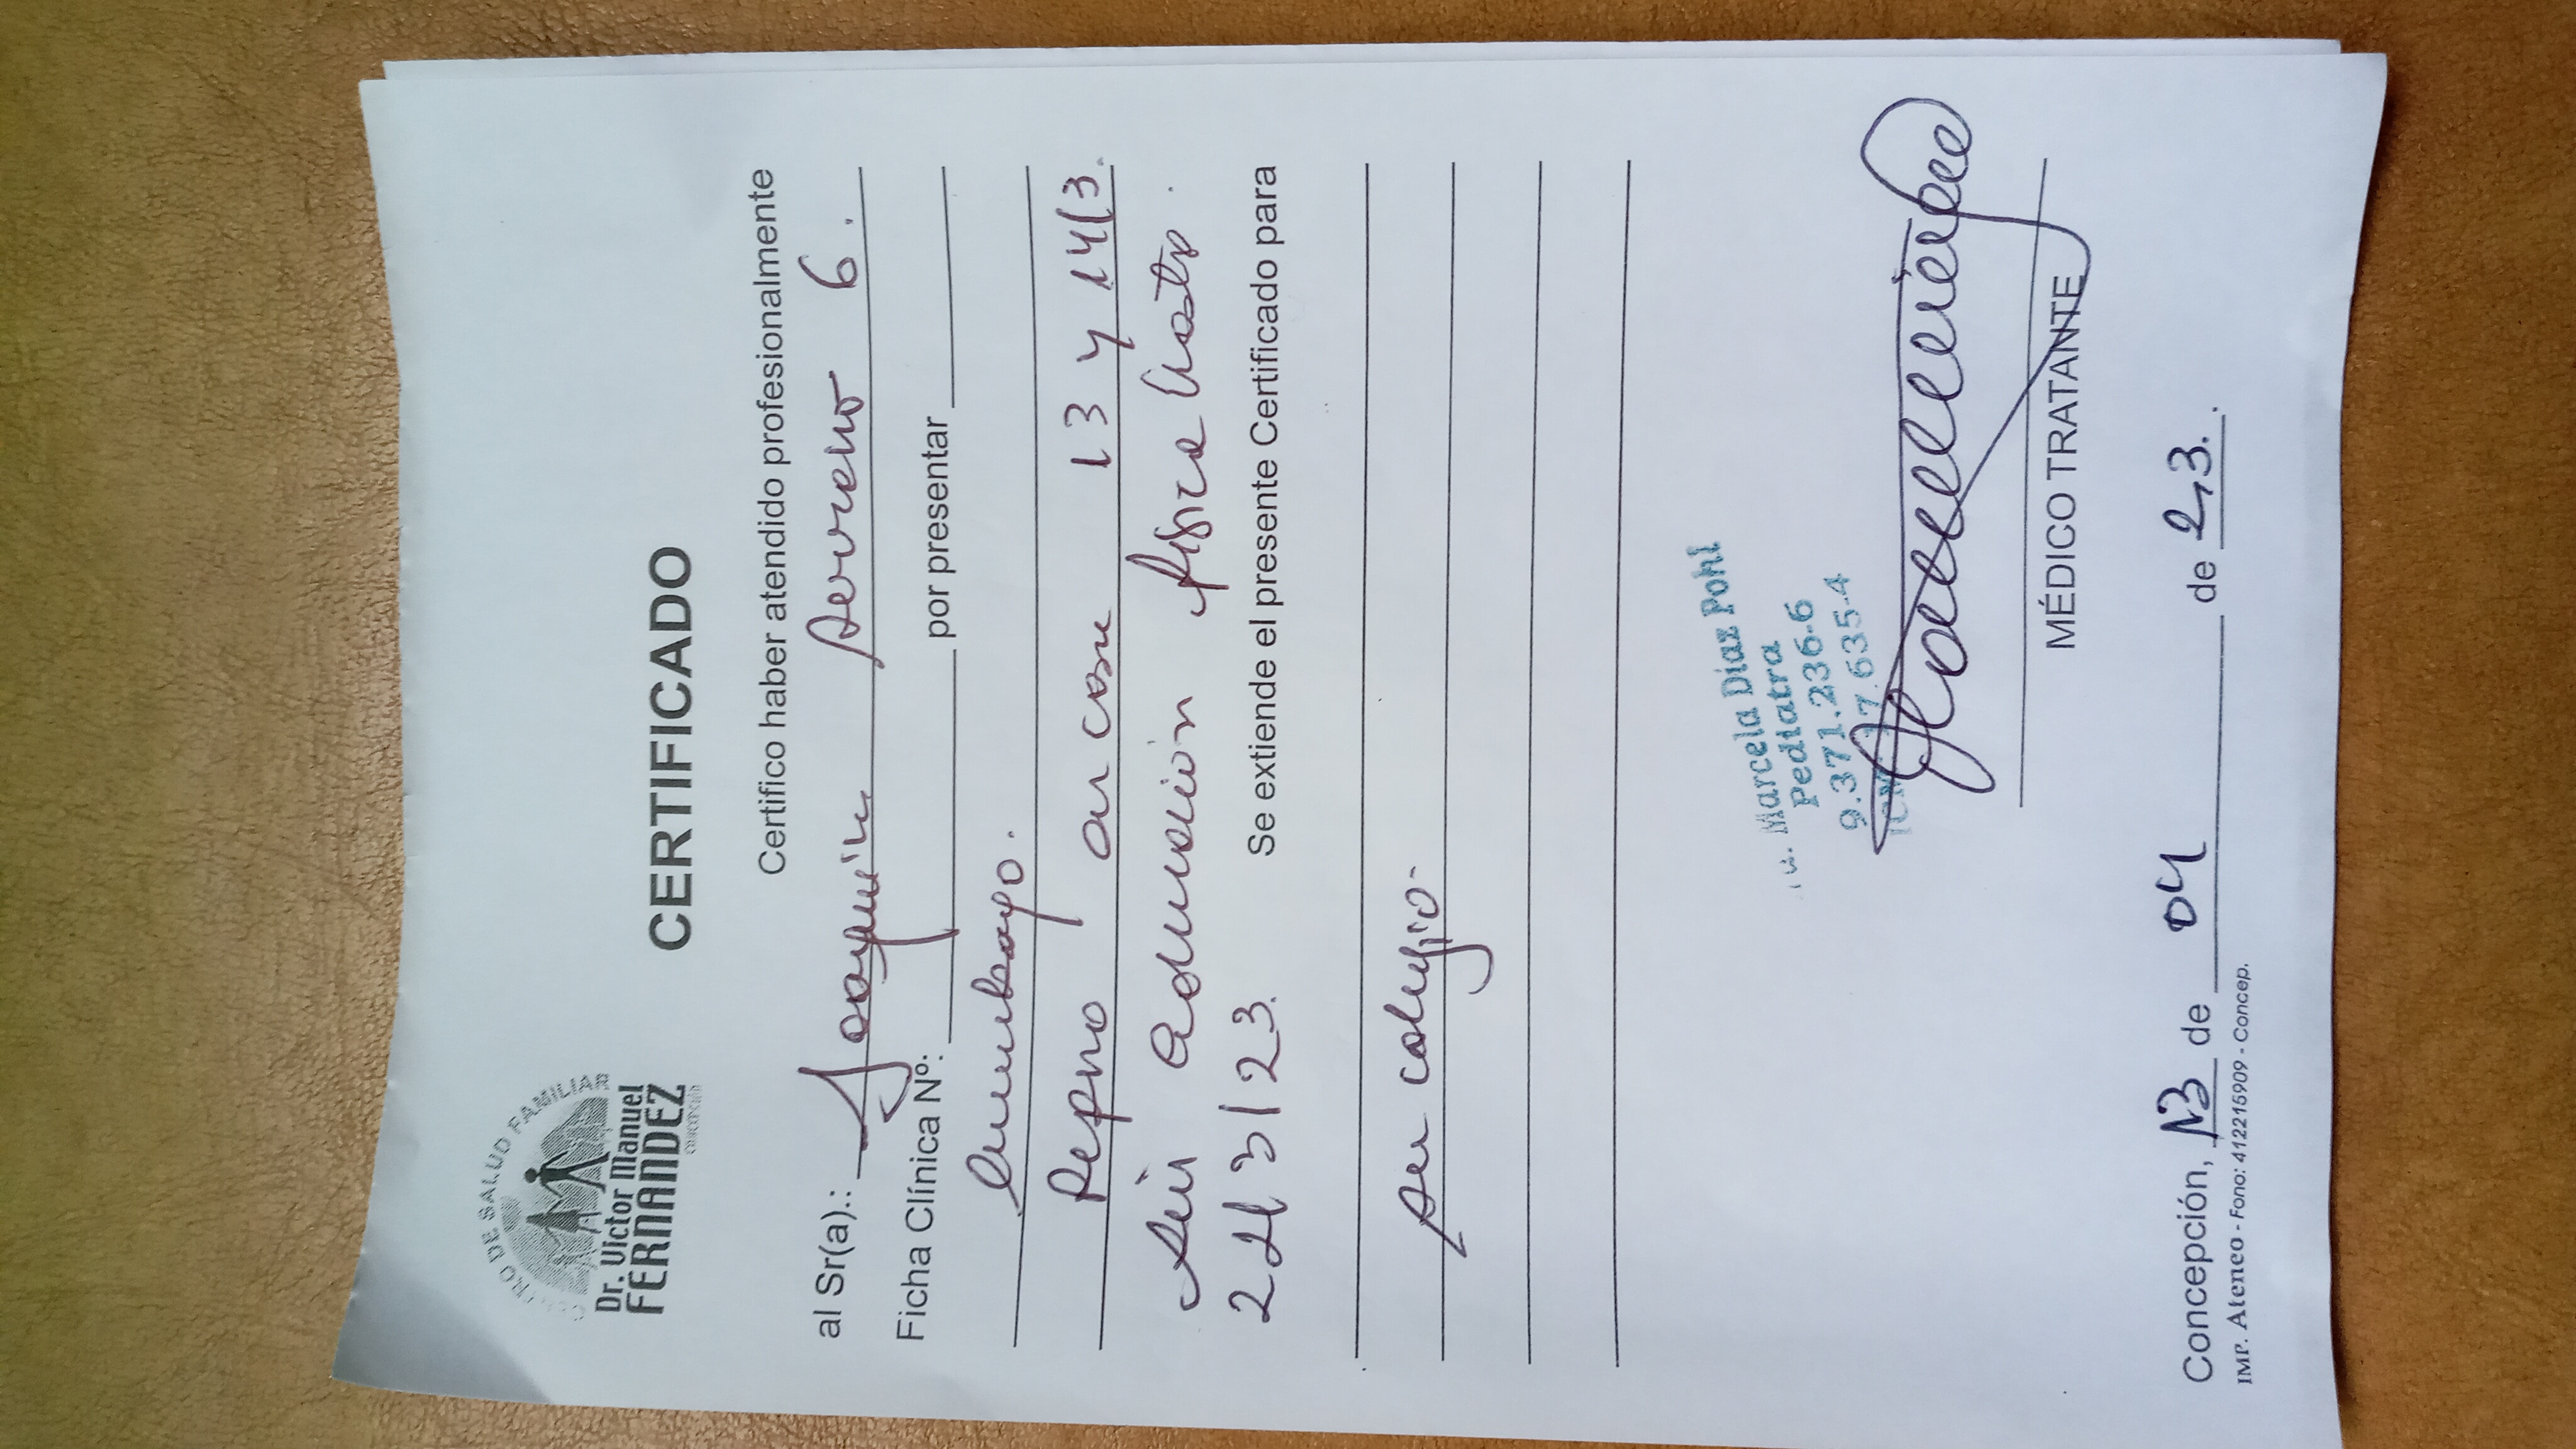 CENTRO DE SALUD FAMILIAR
Dr. Victor Manuel
FERNANDEZ
CONCEPCIÓN
CERTIFICADO
Certifico haber atendido profesionalmente
al Sr(a).: Joaquin Serrano G.
Ficha Clínica Nº: por presentar
Lumbago.
Reposo en casa 13 y 14/3.
Sin educación física hasta
22/3/23. Se extiende el presente Certificado para
su colegio
Marcela Díaz Pohl
Pediatra
9.371.236-6
7.635-4
MÉDICO TRATANTE
Concepción, 13 de 04 de 23.
IMP. Ateneo - Fono: 412215909 - Concep.